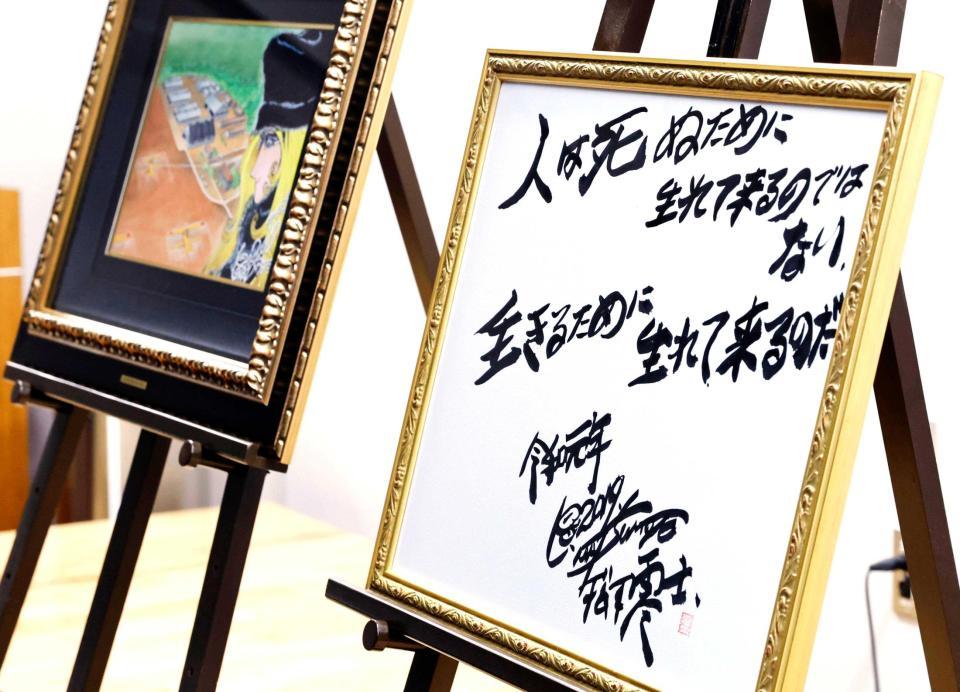 人は死ぬために
生れて来るのでは
ない、
生きるために
生れて来るのだ
令和元年
2019
松本零士、